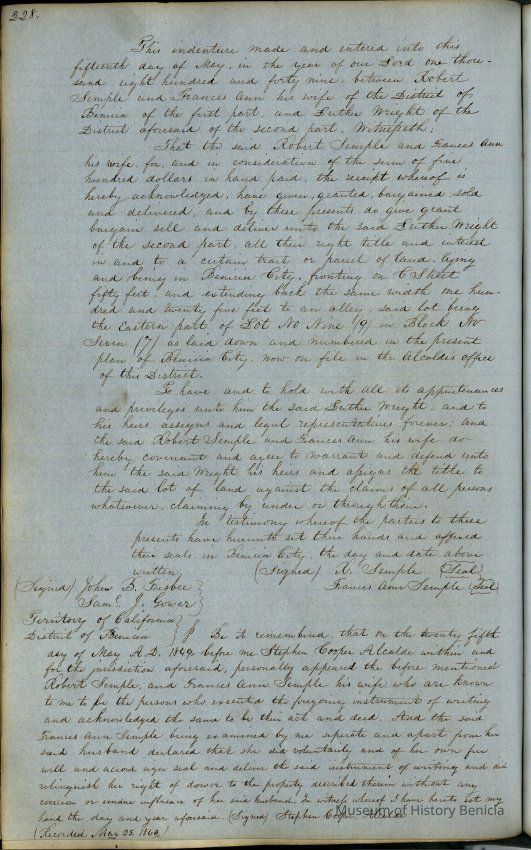 228.
This indenture made and entered into this
fifteenth day of May, in the year of our Lord one thou-
sand eight hundred and forty nine, between Robert
Semple and Frances Ann his wife of the District of
Benicia of the first part, and Luther Wright of the
District aforesaid of the second part, Witnesseth:
That the said Robert Semple and Frances Ann
his wife, for, and in consideration of the sum of five
hundred dollars in hand paid, the receipt whereof is
hereby acknowledged, have given, granted, bargained, sold
and delivered, and by these presents do give grant
bargain sell and deliver unto the said Luther Wright
of the second part, all their right title and interest
in and to a certain tract or parcel of land, lying
and being in Benicia City, fronting on C Street
fifty feet, and extending back the same width one hun-
dred and twenty five feet to an alley, said lot being
the Eastern part of Lot No Nine (9) in Block No
Seven (7) as laid down and numbered in the present
plan of Benicia City, now on file in the Alcaldes office
of this District.
To have and to hold with all its appurtenances
and privileges unto him the said Luther Wright, and to
his heirs assigns and legal representatives forever; and
the said Robert Semple and Frances Ann his wife do
hereby covenant and agree to warrant and defend unto
him the said Wright his heirs and assigns the title to
the said lot of land against the claims of all persons
whatsoever, claiming by under or through them.
In testimony whereof the parties to these
presents have hereunto set their hands and affixed
their seals, in Benicia City, the day and date above
written. (Signed) R. Semple (Seal)
(Signed) John B. Frisbee Frances Ann Semple (Seal)
Saml. J. Gower
Territory of California
District of Benicia Be it remembered, that on the twenty fifth
day of May A.D. 1849 before me Stephen Cooper Alcalde within and
for the jurisdiction aforesaid, personally appeared the before mentioned
Robert Semple, and Frances Ann Semple his wife who are known
to me to be the persons who executed the foregoing instrument of writing
and acknowledged the same to be their act and deed. And the said
Frances Ann Semple being examined by me seperate and apart from her
said husband declared that she did voluntarily and of her own free
will and accord sign seal and deliver the said instrument of writing and did
relinquish her right of dower to the property described therein without any
coercion or undue influence of her said husband. In witness whereof I have hereto set my
hand the day and year aforesaid (Signed) Stephen Cooper
(Recorded May 25. 1849)
Museum of History Benicia